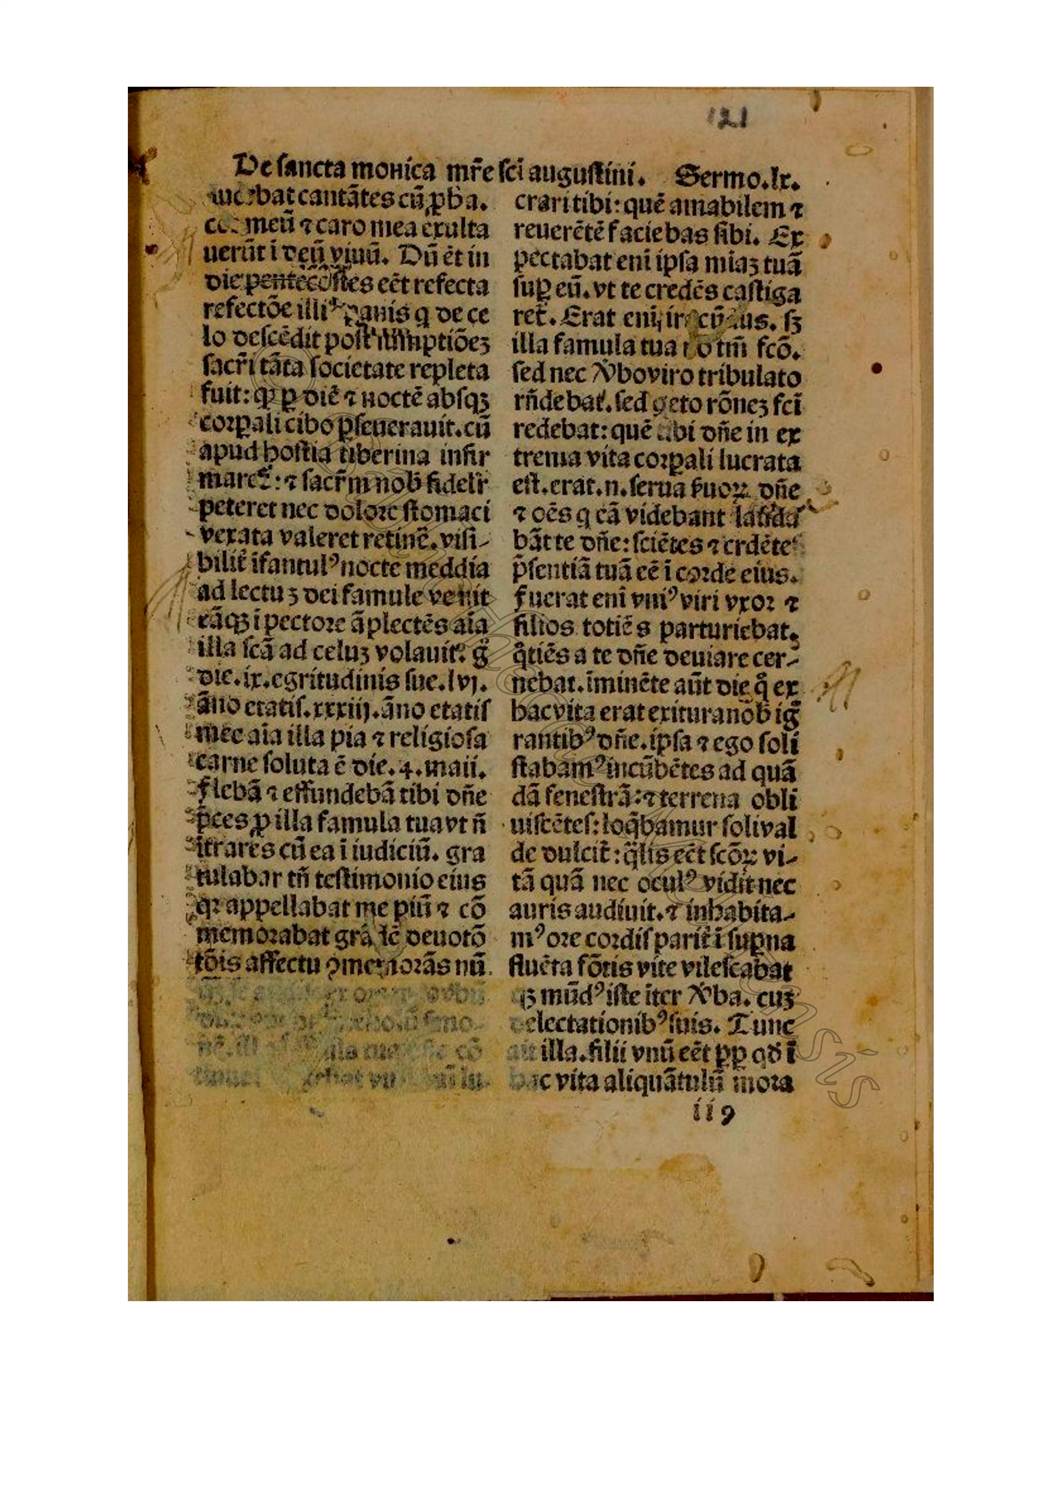 121
De sancta monica mr̃e sci augustini. Sermo.lx.
bat cantātes cū ꝓbȧ.
meū ⁊ caro mea exulta
uerūt ī deū viuū. Dū ēt in
die pentecostes eēt refecta
refectōe illiꝰ panis q de ce
lo descēdit post sumptiōeꝫ
sacr̄i tāta societate repleta
fuit: ꝙ ꝑ diē ⁊ noctē absqꝫ
corꝑali cibo ꝑseuerauit. cū
apud hostia tiberina infir
maret̃: ⁊ sacr̄m nob̄ fidelr̄
peteret nec dolore stomaci
vexata valeret retinē. visi-
bilit̃ īfantulꝰ nocte meddia
ad lectuꝫ dei famule venit
eāqꝫ ī pectore āplectēs aīa
illa scā ad celuꝫ volauit. g̊
die.ix.egritudinis sue.lvj.
āno etatis.xxxiij.āno etatis
mee aīa illa pia ⁊ religiosa
carne soluta ē die.4.maii.
Flebā ⁊ effundebā tibi dñe
p̄ces ꝓ illa famula tua vt ñ
ītrares cū ea ī iudiciū. gra
tulabar tñ testimonio eius
qꝛ appellabat me piū ⁊ cō
memorabat grā deuotō
tōis affectu ꝯmemorās nū
crari tibi: quē amabilem ⁊
reuerētē faciebas sibi. Ex
pectabat enī ipsa miaꝫ tuā
suꝑ eū. vt te credēs castiga
ret. Erat enī sꝫ
illa famula tua tm̄ fcō.
sed nec ꝟbo viro tribulato
rñdebat. sed rōneꝫ fcī
redebat: quē tibi dñe in ex
trema vita corꝑali lucrata
est. erat.n.serua suoꝝ dñe
⁊ oēs q eā videbant lauda
bāt te dñe: sciētes ⁊ crdētes
p̄sentiā tuā eē ī corde eius.
fuerat enī vniꝰ viri vxor ⁊
filios totiēs parturiebat.
q̄tiēs a te dñe deuiare cer-
nebat. īminēte aūt die q̄ ex
hac vita erat exitura nob̄ ig̊
rantibꝰ dñe. ipsa ⁊ ego soli
stabamꝰ incūbētes ad quā
dā fenestrā: ⁊ terrena obli
uiscētes: loq̄bamur soli val
de dulcit̃: q̄lis eēt scōꝝ vi-
tā quā nec oculꝰ vidit nec
auris audiuit. ⁊ inhabita-
mꝰ ore cordis parit̃ ī suꝑna
fluēta fōtis vite vilescabat
qꝫ mūdꝰ iste īter ꝟba. cuꝫ
delectationibꝰ suis. Tunc
ait illa. filii vnū eēt ꝓp qd̄ ī
hac vita aliquātulū mora
ii9